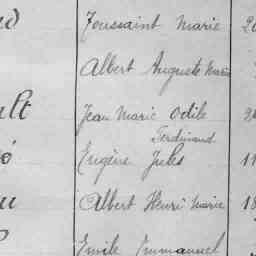 Toussaint Marie
Albert Auguste Marie
ult Jean Marie Odile
Ferdinand
Eugène Jules 11
Albert Henri Marie 18
Emile Emmanuel